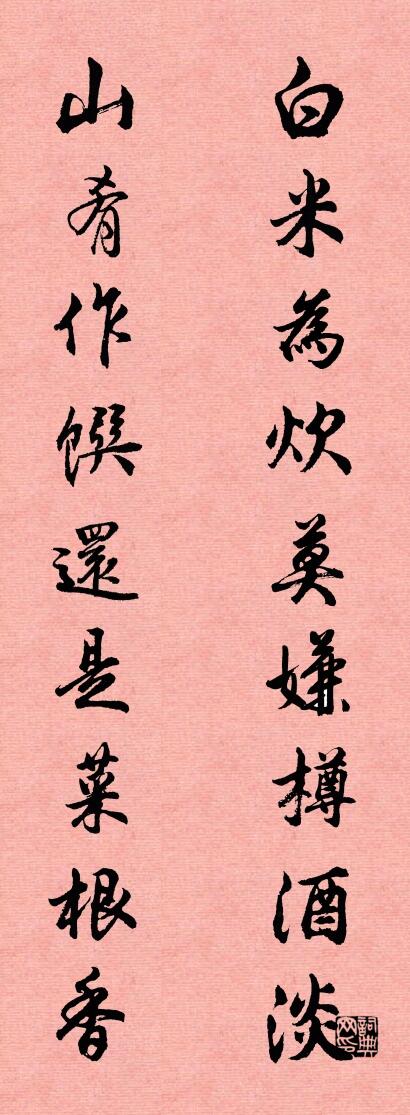 白米為炊莫嫌樽酒淡
山肴作饌還是菜根香
詞典網印